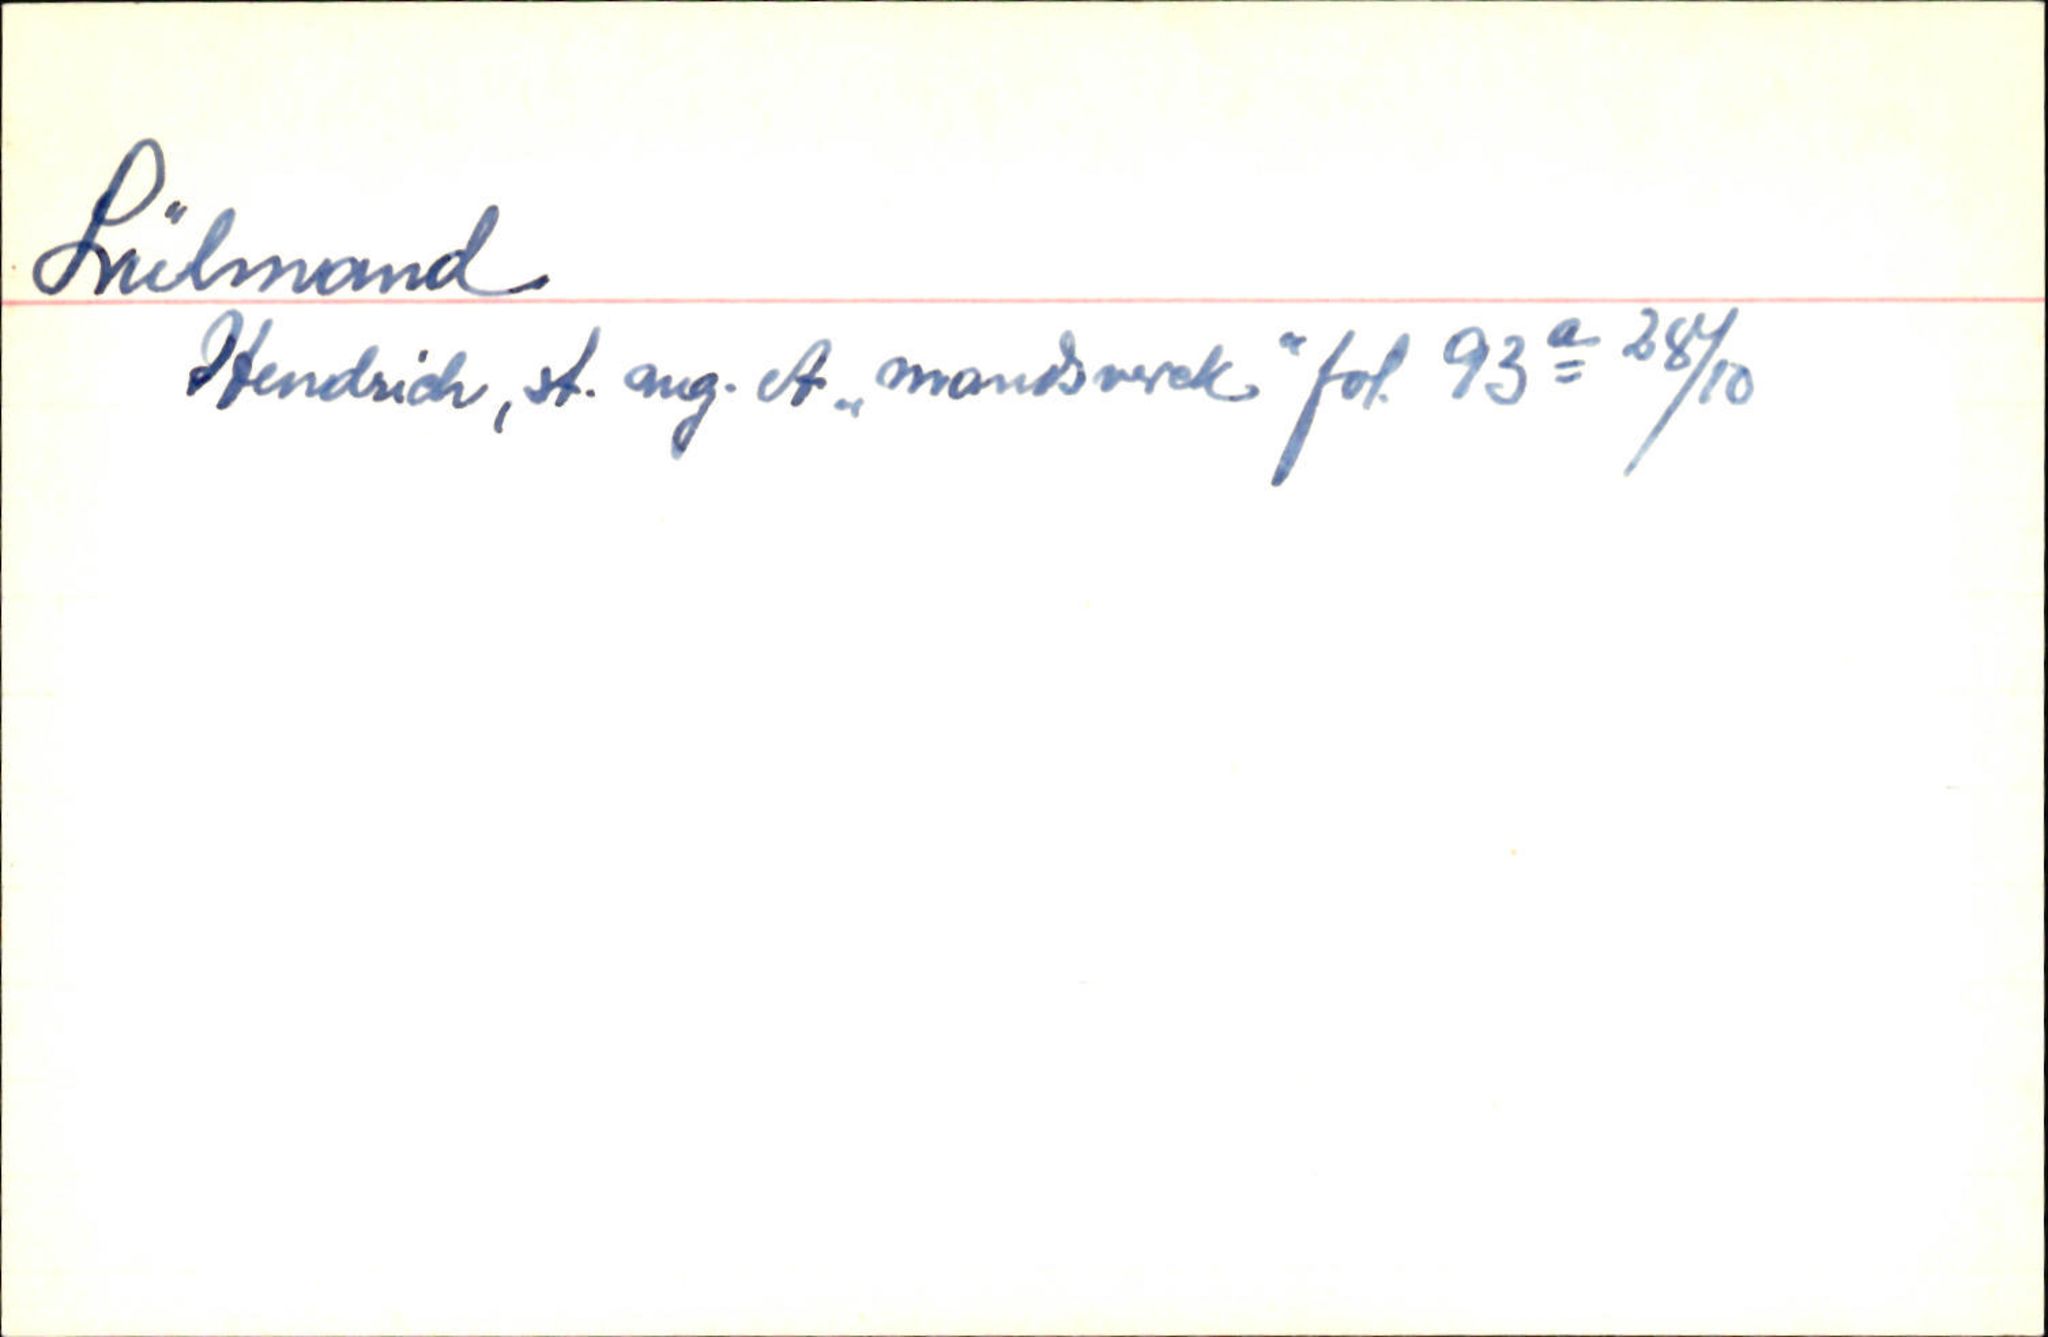 Lülmand
Hendrich, st. ang. et „mandsverck“ fol. 93ª 28/10